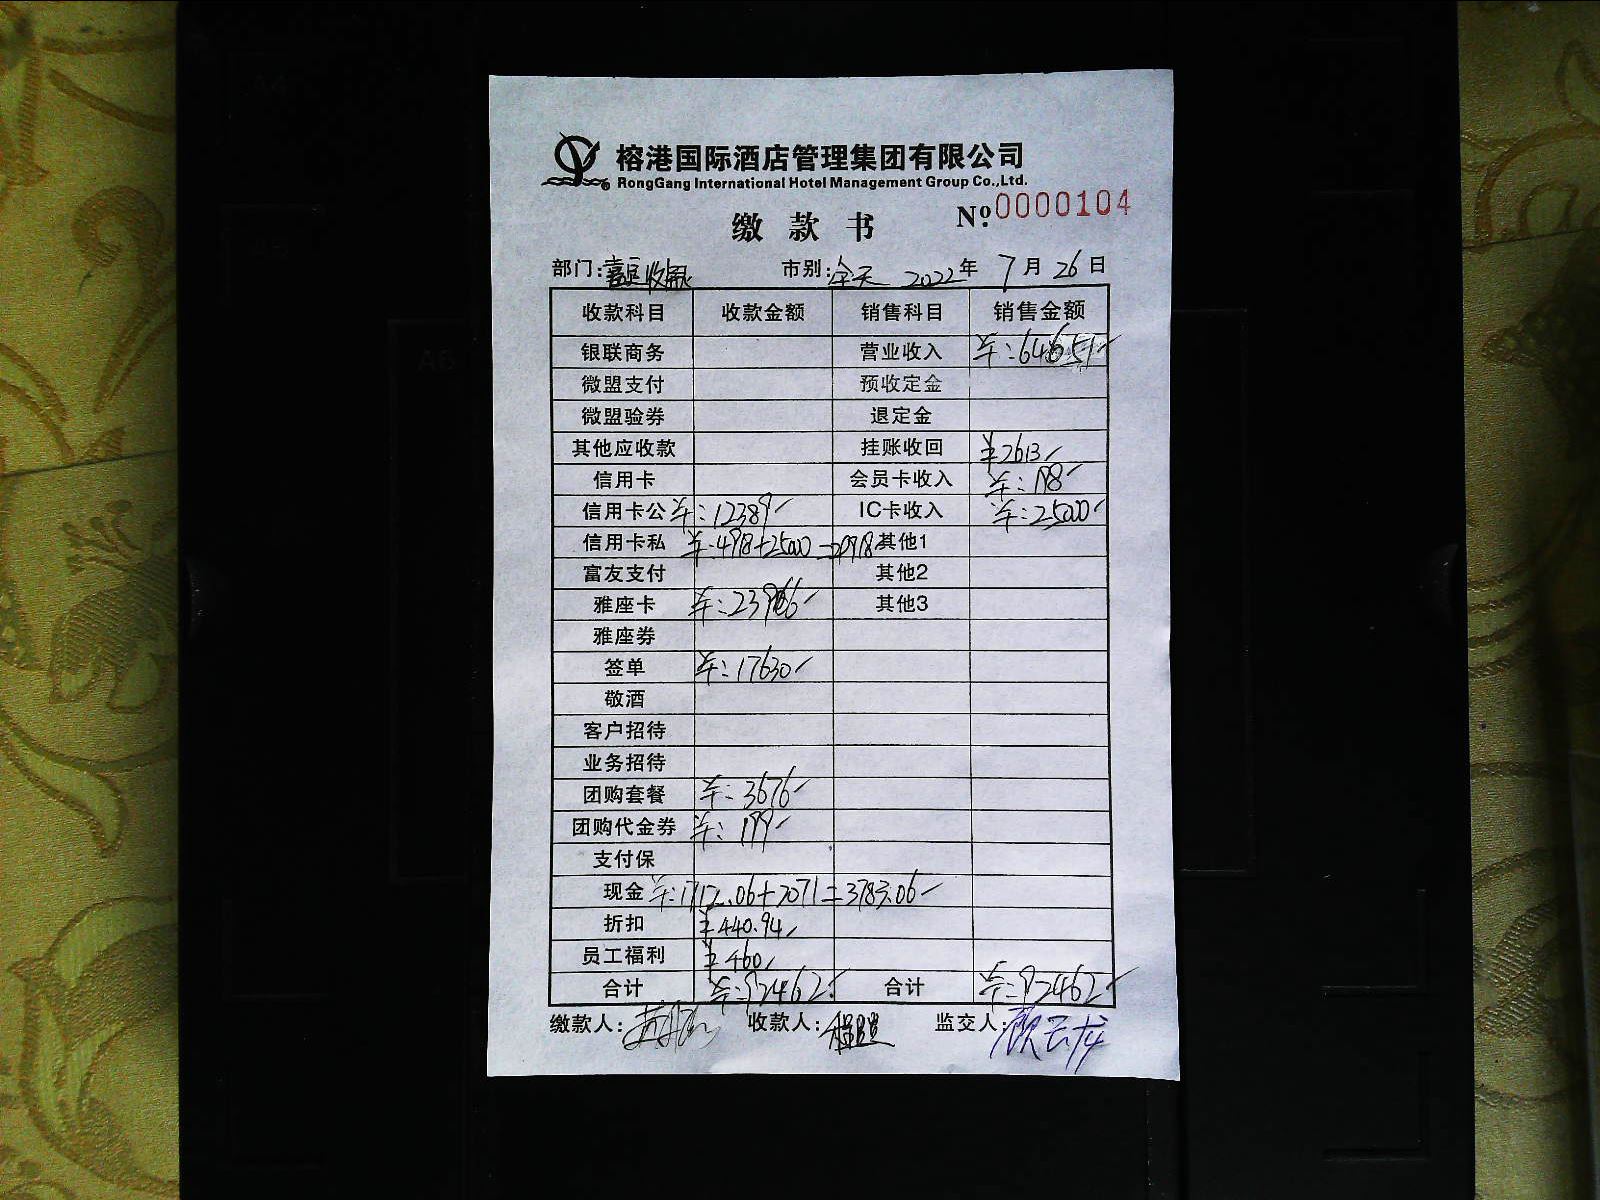 榕港国际酒店管理集团有限公司
RongGang International Hotel Management Group Co.,Ltd.
缴款书 №:0000104
部门: 收银 市别:全天 2022年7月26日
收款科目 收款金额 销售科目 销售金额
银联商务 营业收入 ¥:64651
微盟支付 预收定金
微盟验券 退定金
其他应收款 挂账收回 ¥2613
信用卡 会员卡收入 ¥:198
信用卡公 ¥:12389 IC卡收入 ¥:25000
信用卡私 ¥:4918+25000=29918 其他1
富友支付 其他2
雅座卡 ¥:23966 其他3
雅座券
签单 ¥:17630
敬酒
客户招待
业务招待
团购套餐 ¥:3676
团购代金券 ¥:199
支付保
现金 ¥:1712.06+2071=3783.06
折扣 ¥440.94
员工福利 ¥460
合计 ¥:92462 合计 ¥:92462
缴款人: 收款人: 监交人:顾云龙
A6